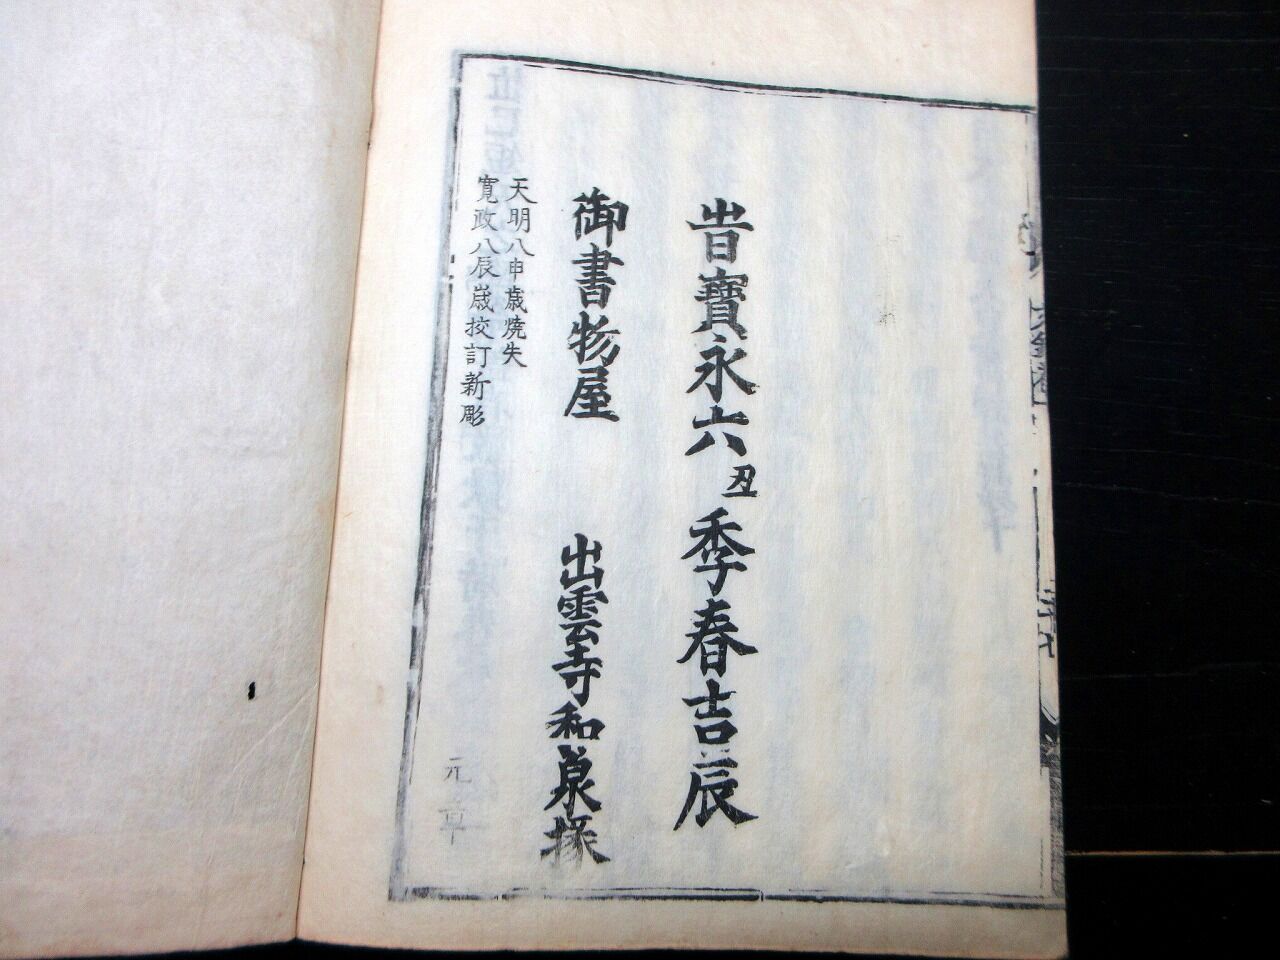 旹寳永六丑季春吉辰
御書物屋 出雲寺和泉掾
天明八申歳焼失
寛政八辰歳挍訂新彫
元章